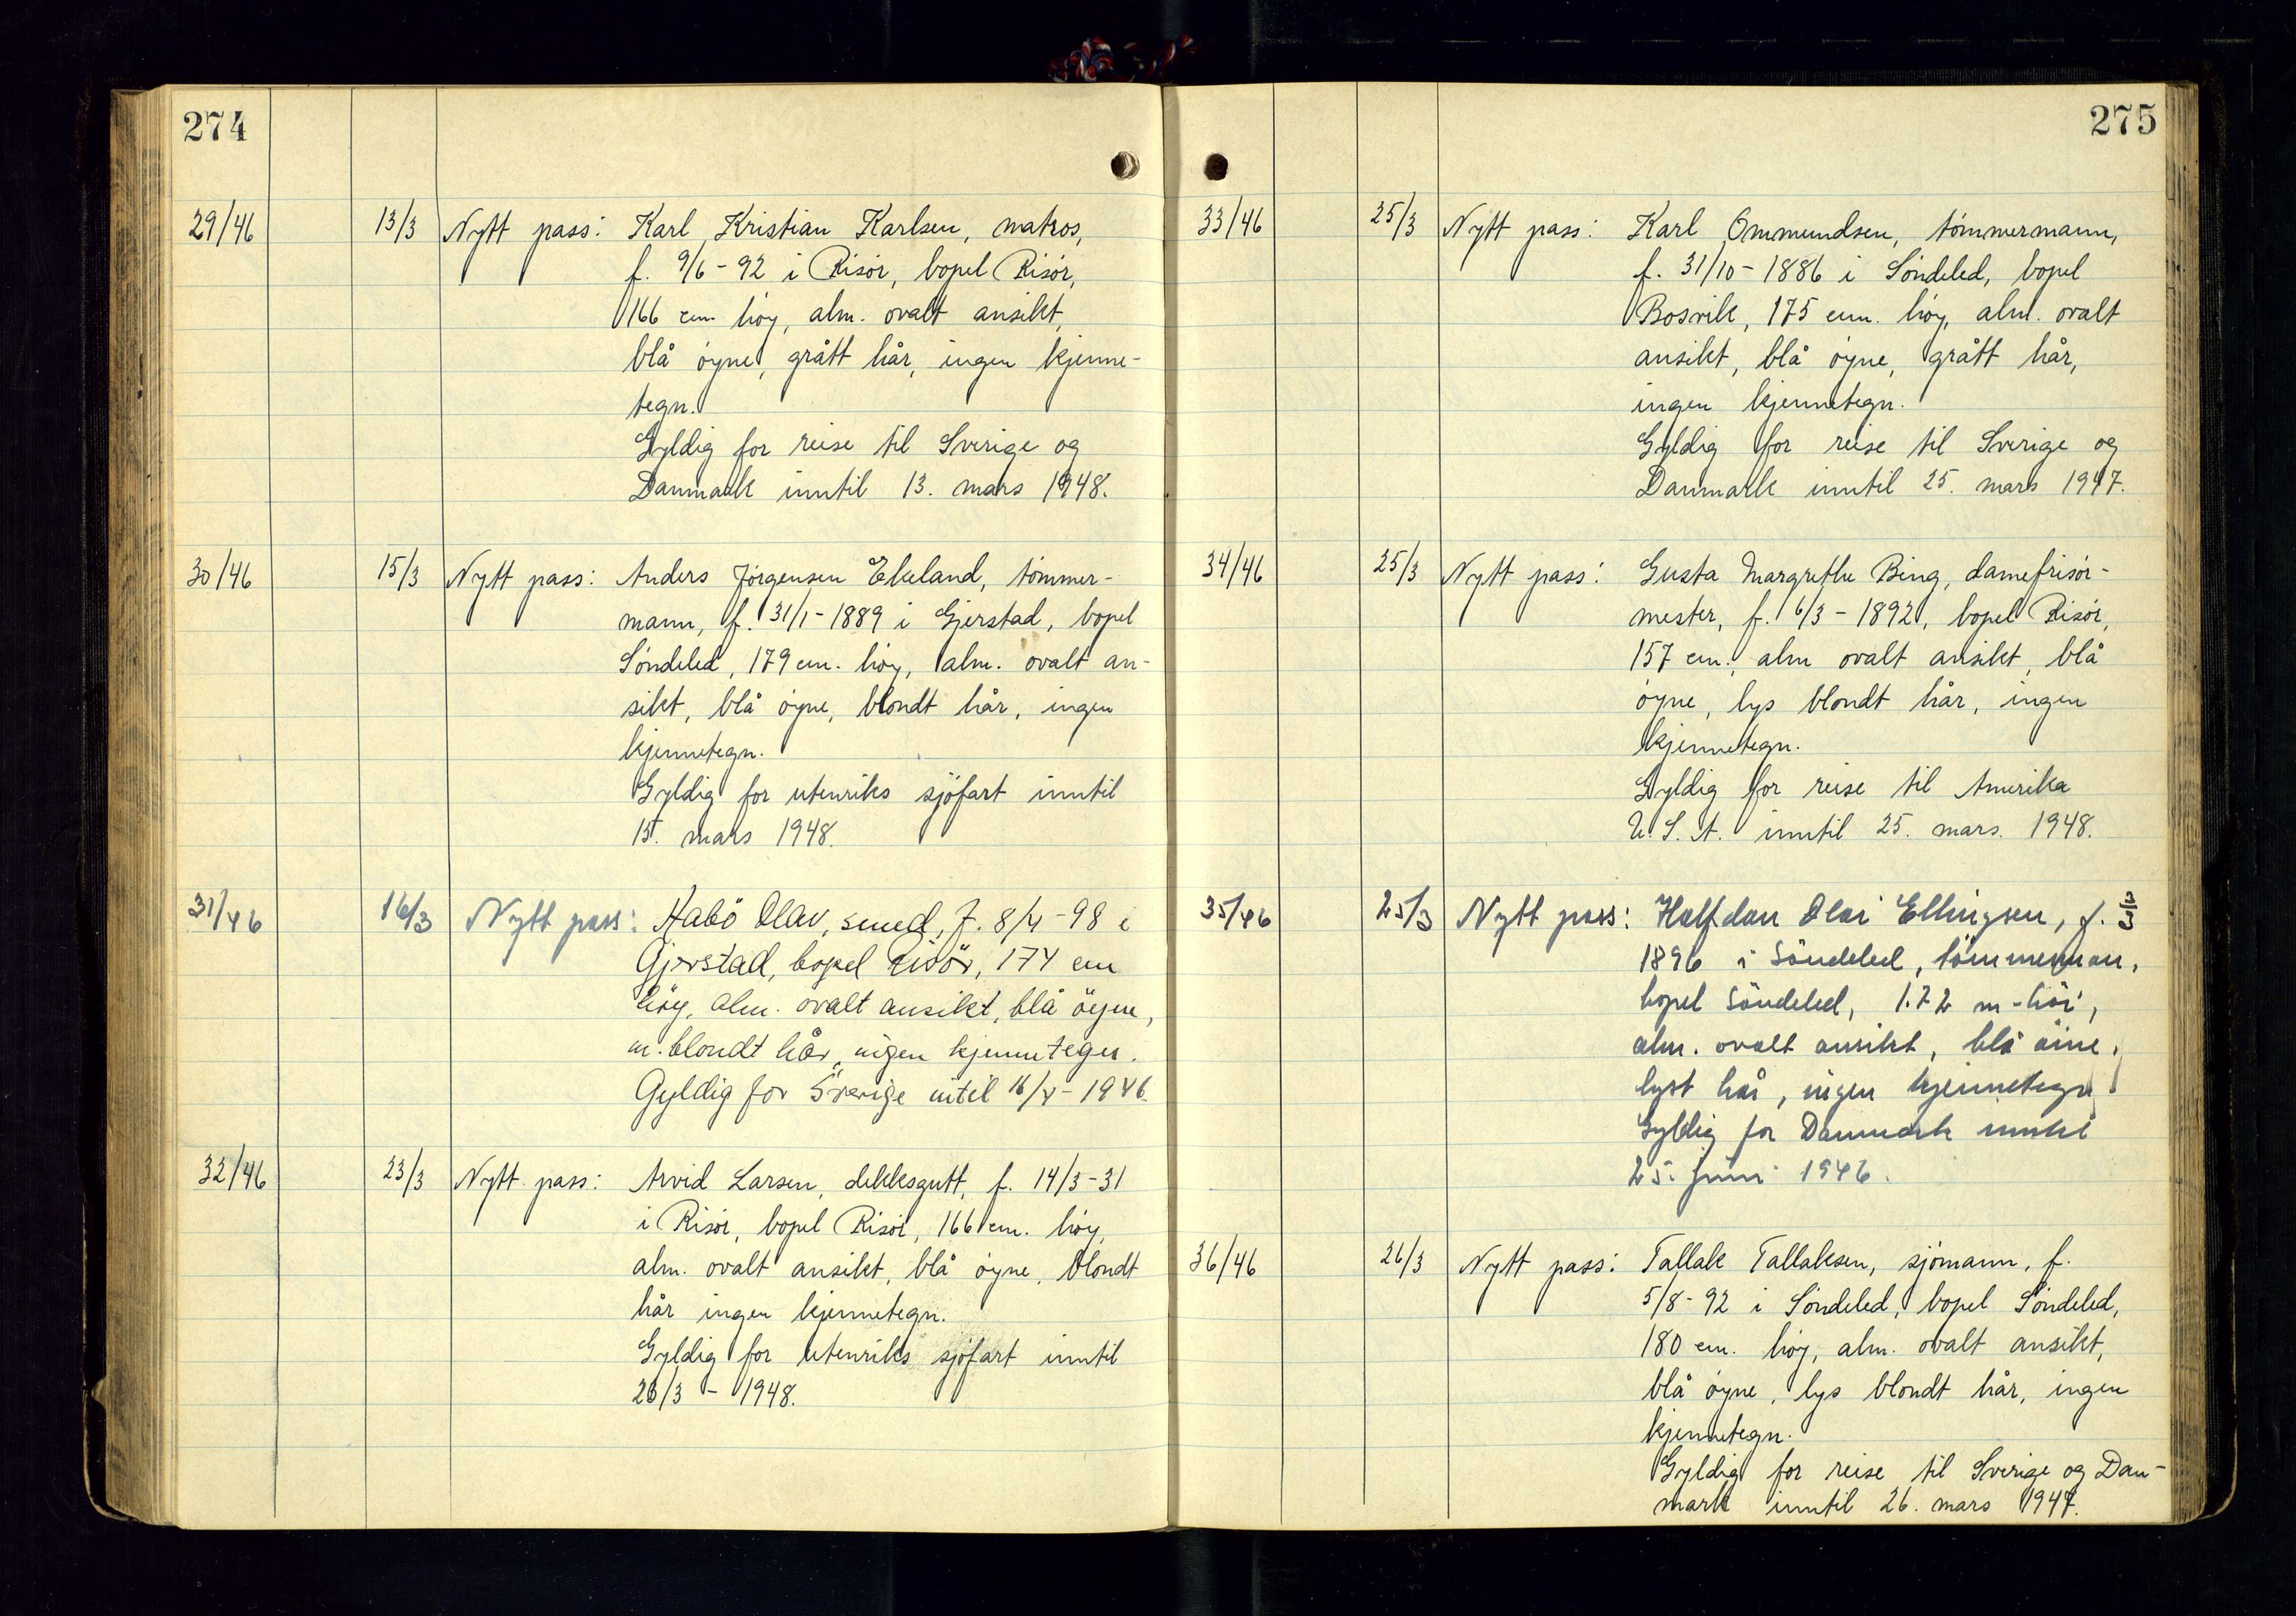 274
29/46 13/3 Nytt pass: Karl Kristian Karlsen, matros,
f. 9/6 - 92 i Risör, bopel Risör,
166 cm. höy, alm. ovalt ansikt,
blå öyne, grått hår, ingen kjenne-
tegn.
Gyldig for reise til Sverige og
Danmark inntil 13. mars 1948.
30/46 15/3 Nytt pass: Anders Jörgensen Ekeland, tömmer-
mann, f. 31/1 - 1889 i Gjerstad, bopel
Söndeled, 179 cm. höy, alm. ovalt an-
sikt, blå öyne, blondt hår, ingen
kjennetegn.
Gyldig for utenriks sjöfart inntil
15. mars 1948.
31/46 16/3 Nytt pass: Habö Olav, smed, f. 8/4 - 98 i
Gjerstad, bopel Risör, 174 cm
höy, alm. ovalt ansikt, blå öyne,
m. blondt hår, ingen kjennetegn.
Gyldig for Sverige intil 16/4 - 1946.
32/46 23/3 Nytt pass: Arvid Larsen, dekksgutt, f. 14/3 - 31
i Risör, bopel Risör, 166 cm. höy,
alm. ovalt ansikt, blå öyne, blondt
hår ingen kjennetegn.
Gyldig for utenriks sjöfart inntil
23/3 - 1948.
275
33/46 25/3 Nytt pass: Karl Ommundsen, tömmermann,
f. 31/10 - 1886 i Söndeled, bopel
Bosvik, 175 cm. höy, alm. ovalt
ansikt, blå öyne, grått hår,
ingen kjennetegn.
Gyldig for reise til Sverige og
Danmark inntil 25. mars 1947.
34/46 25/3 Nytt pass: Gusta Margrethe Bing, damefrisör-
mester, f. 6/3 - 1892, bopel Risör,
157 cm., alm ovalt ansikt, blå
öyne, lys blondt hår, ingen
kjennetegn.
Gyldig for reise til Amerika
U.S.A. inntil 25. mars. 1948.
35/46 25/3 Nytt pass: Halfdan Olai Ellingsen, f.
1896 i Söndeled, tömmerman,
bopel Söndeled, 1.72 m - höi,
alm. ovalt ansikt, blå öine,
lyst hår, ingen kjennetegn.
Gyldig for Danmark inntil
25. juni 1946.
36/46 26/3 Nytt pass: Tallak Tallaksen, sjömann, f.
5/8 - 92 i Söndeled, bopel Söndeled,
180 cm. höy, alm. ovalt ansikt,
blå öyne, lys blondt hår, ingen
kjennetegn.
Gyldig for reise til Sverige og Dan-
mark inntil 26. mars 1947.